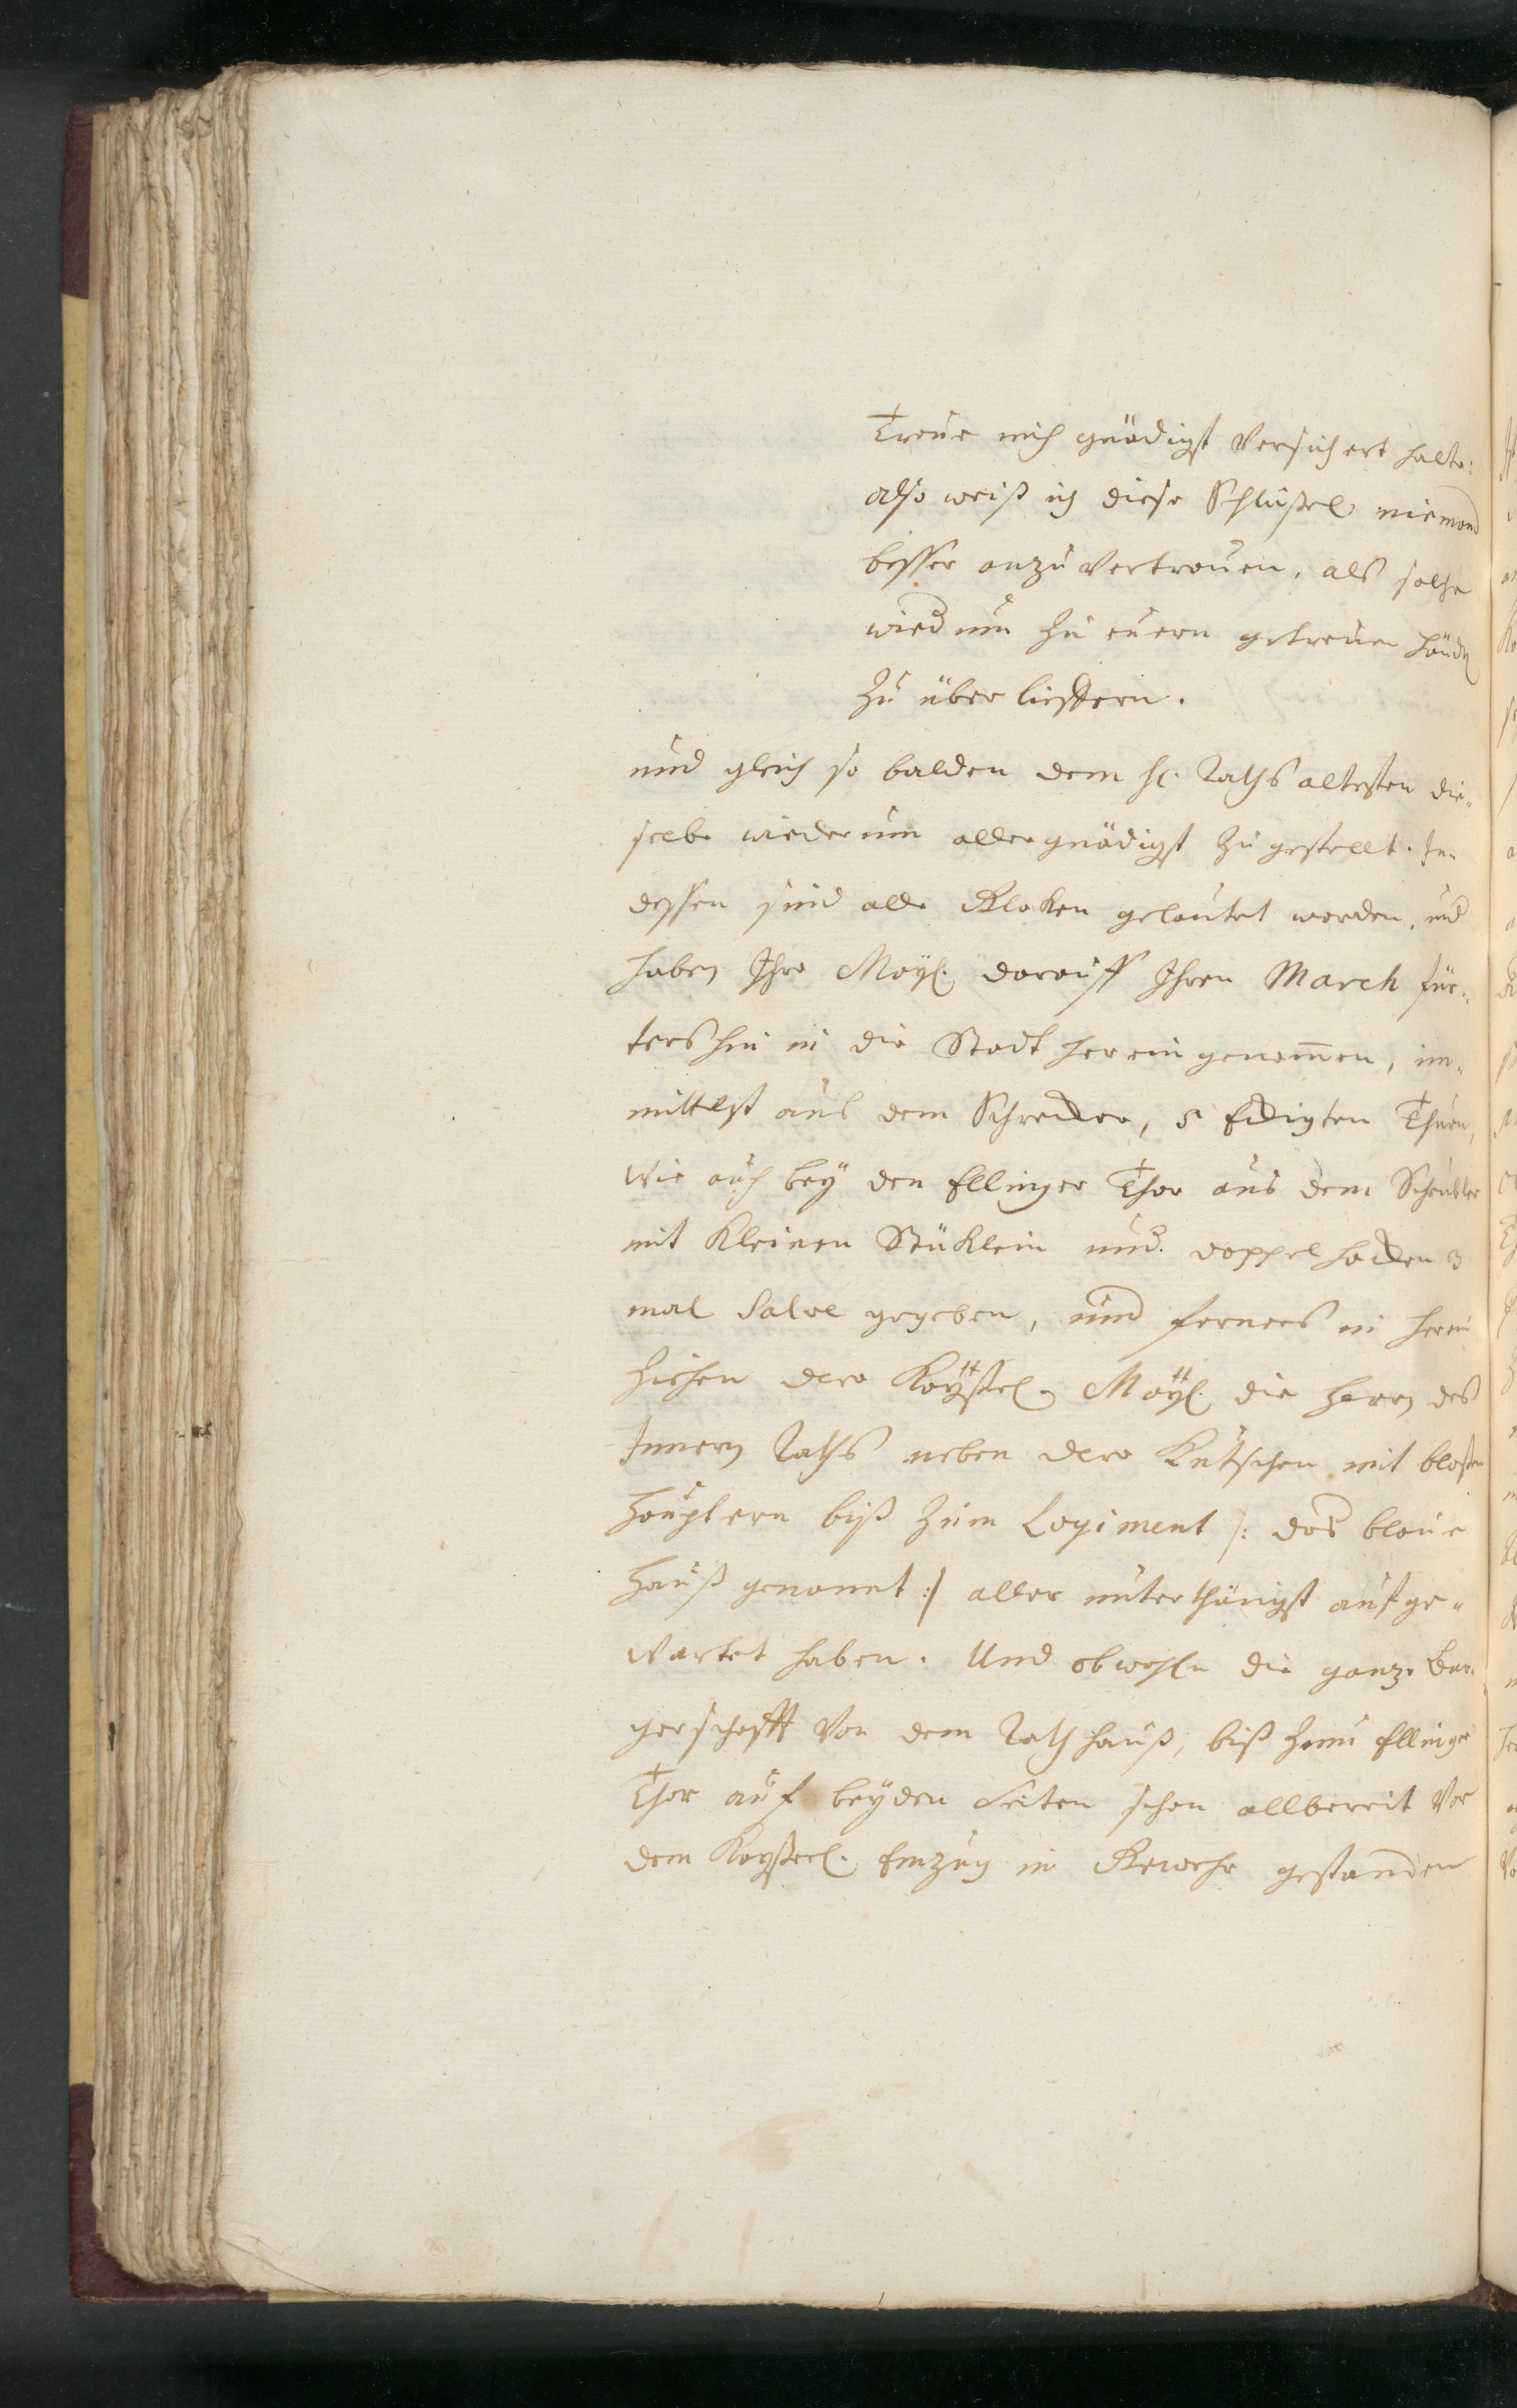 Treue mich gnädigst versichert halte:
also weiß ich diese Schlüßel niemand
besser anzuvertrauen, als solche
wiederum zu euern getreuen Händen
zu über lieffern.
und gleich so balden dem H. Raths altesten die„
selbe wiederum allergnädigst zu gestellt. In„
dessen sind alle Kloken geläutet worden, und
haben Ihro Mayl. darauff Ihren March für„
ters hin in die Stadt herein genom̄en, im„
mittelst aus dem Schrecker, 5 Eckigten Thurn,
wie auch bey den Ellinger Thor aus dem
mit kleinen Stüklein und doppel hacken 3
mal Salve gegeben, und ferners in herein
ziehen dero Kayßerl. Mayl. die Herrn des
Innern Raths neben dero Kutschen mit bloßen
Häuptern biß zum Logiment /: das blaue
Hauß genannt :/ aller unterthänigst aufge„
wartet haben. Und obwohln die ganze Bur„
gerschafft von dem Rathhauß, biß zum Ellinger
Thor auf beyden Seiten schon allbereit vor
dem Kayßerl. Einzug in Gewehr gestanden